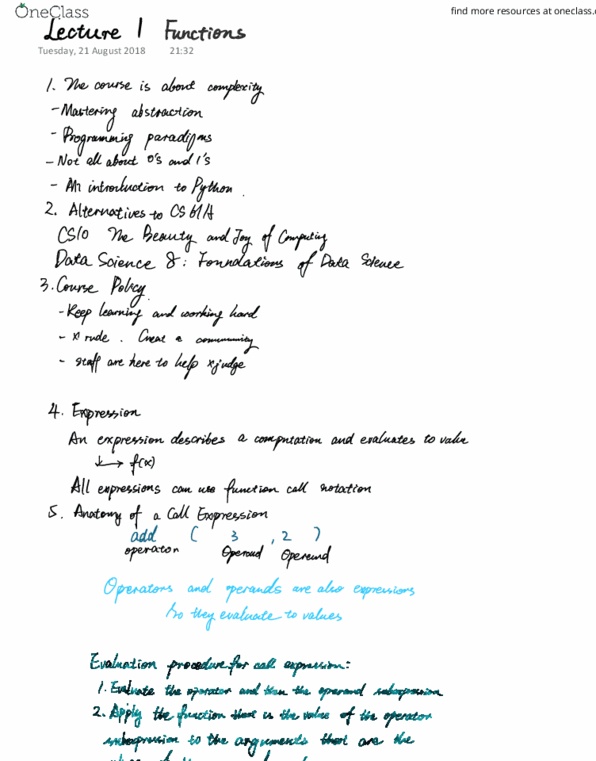 OneClass
find more resources at oneclass.
Lecture 1 Functions
Tuesday, 21 August 2018 21:32
1. The course is about complexity
- Mastering abstraction
- Programming paradigms
- Not all about 0's and 1's
- An introduction to Python.
2. Alternatives to CS 61A
CS10 The Beauty and Joy of Computing
Data Science 8: Foundations of Data Science
3. Course Policy
- Keep learning and working hard
- x rude. Creat a community
- staff are here to help x judge
4. Expression
An expression describes a computation and evaluates to value
↳ f(x)
All expressions can use function call notation
5. Anatomy of a Call Expression
add ( 3 , 2 )
operator Operand Operand
Operators and operands are also expressions
So they evaluate to values
Evaluation procedure for call expression:
1. Evaluate the operator and then the operand subexpression
2. Apply the function that is the value of the operator
subexpression to the arguments that are the